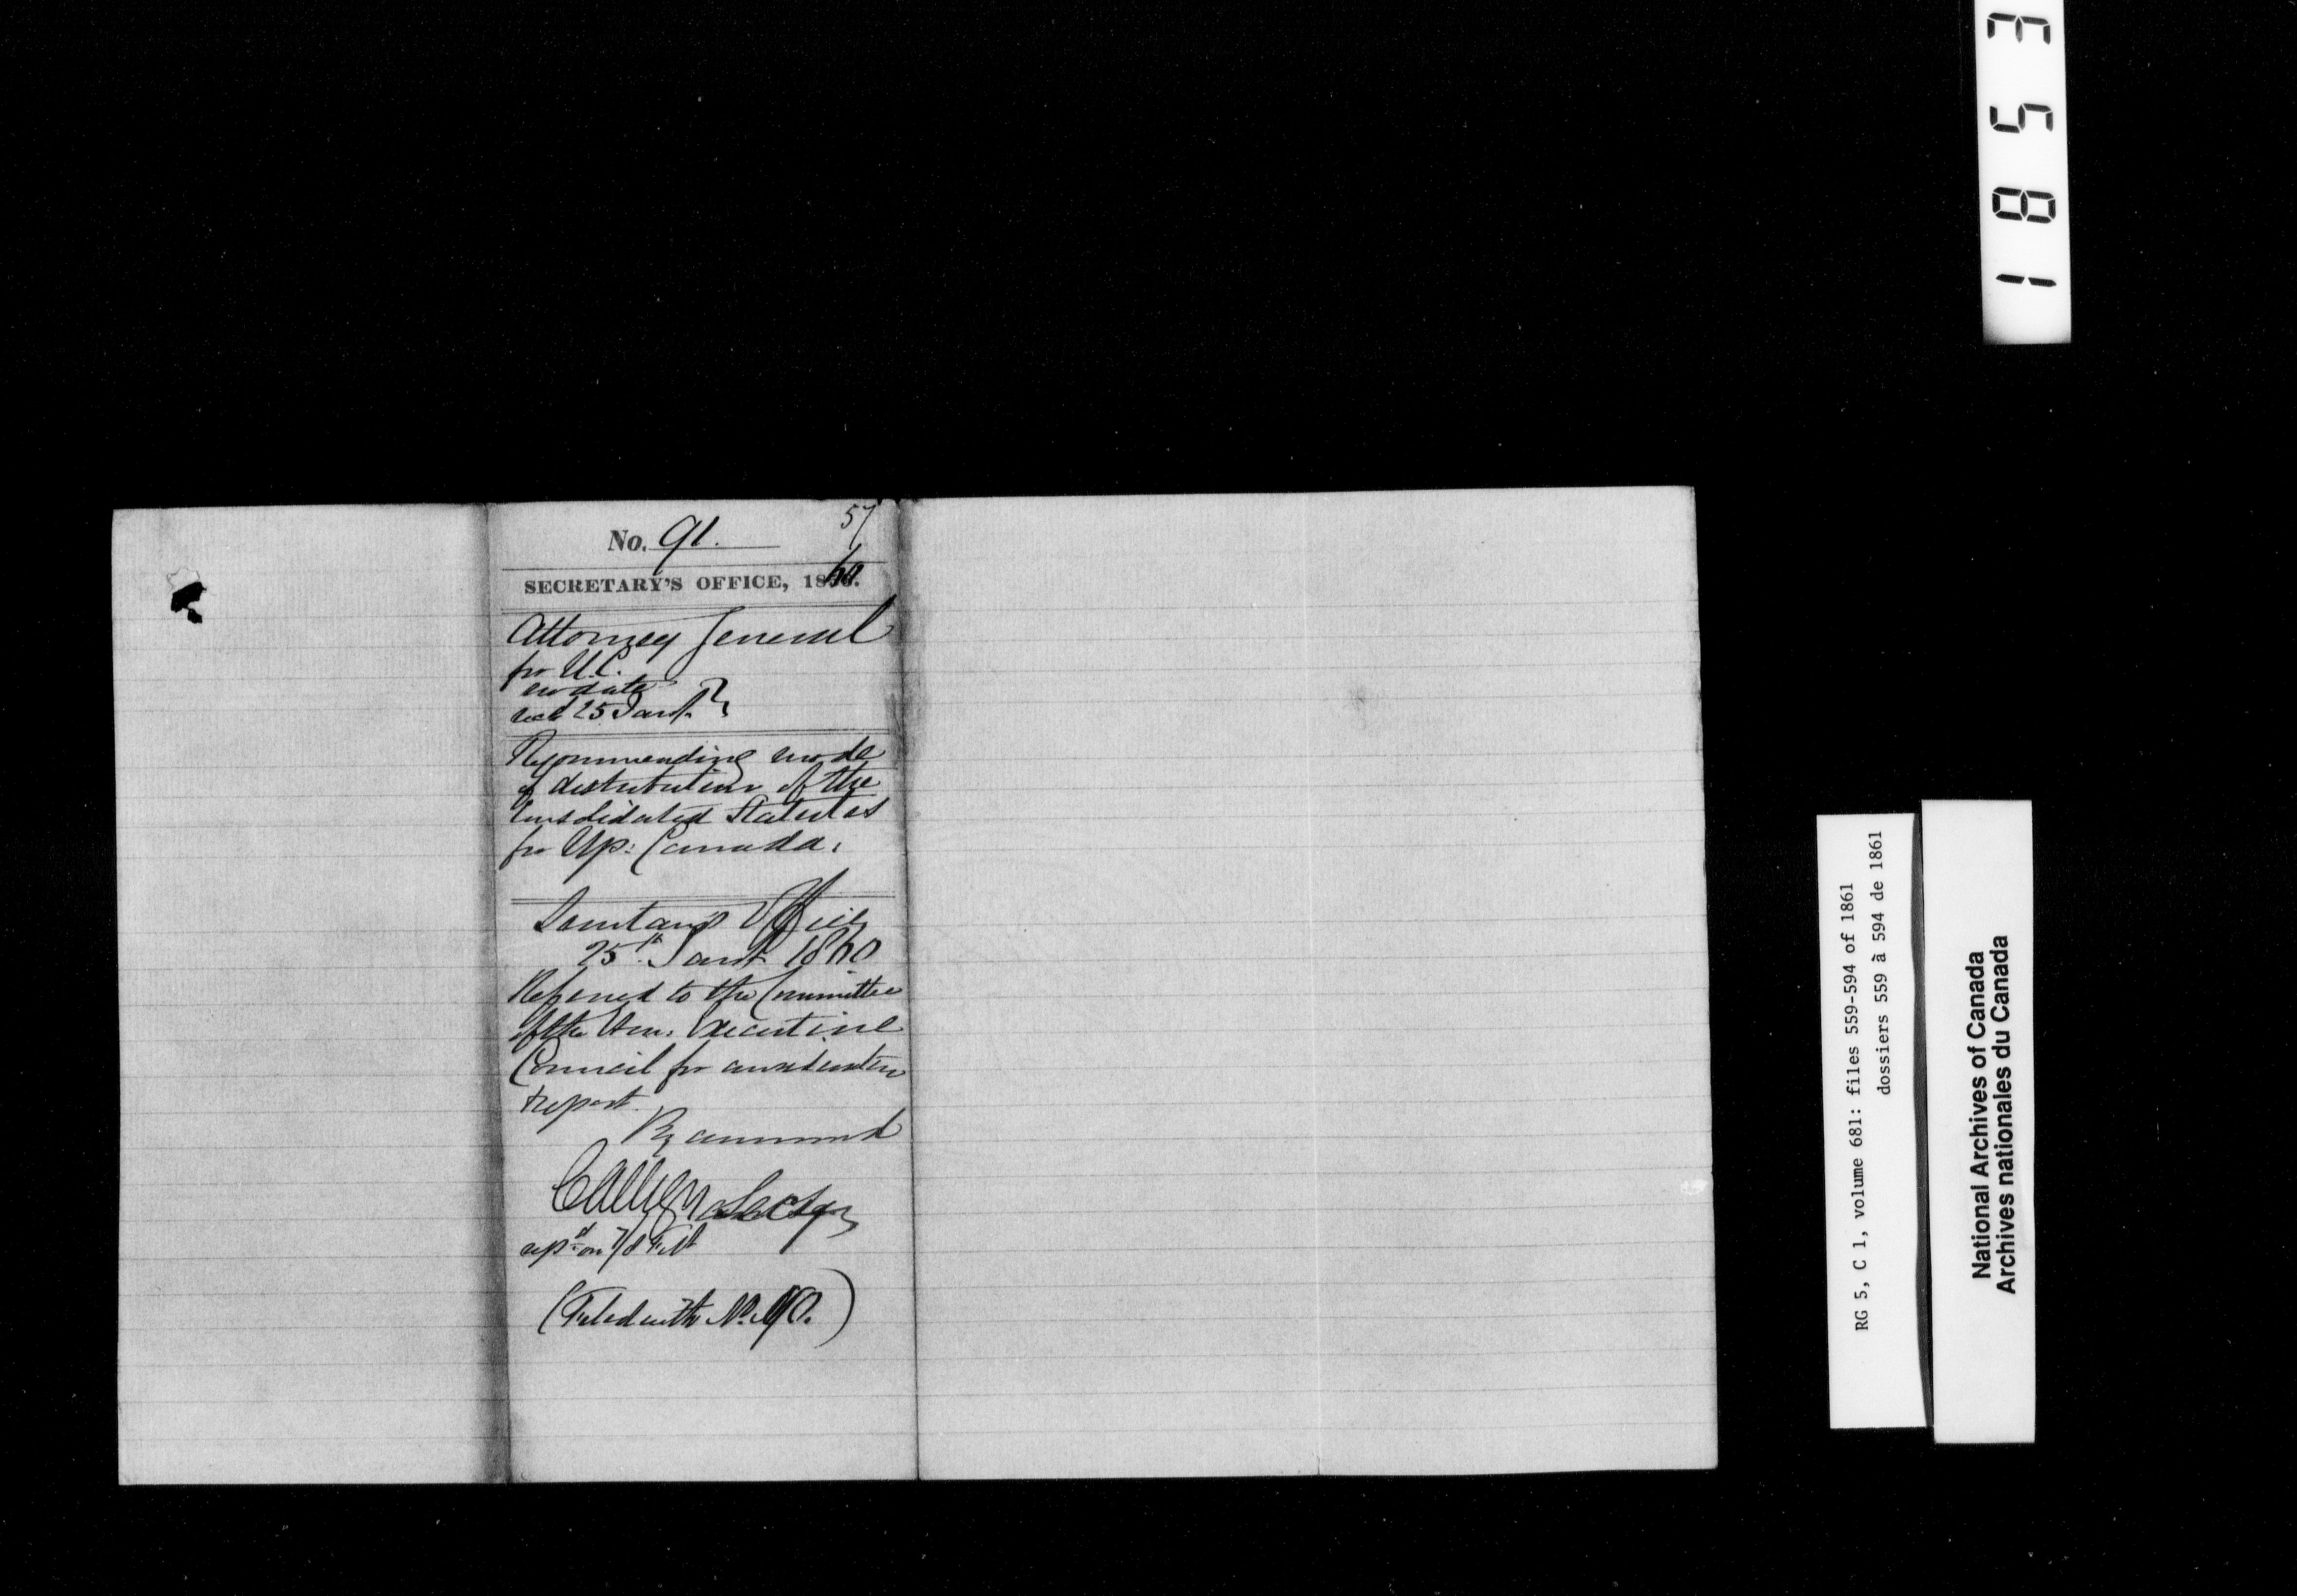 1853
No. 91.
57
SECRETARY'S OFFICE, 1860.
Attorney General
for U.C.
no date
recd 25 Jany.
Recommending mode
of distribution of the
Consolidated Statutes
for Up: Canada.
Secretary's Office
25th Jany. 1860
Referred to the Committee
of the Hon. Executive
Council for consideration
& report.
By command
Secty
repd on 7/8 Feb
(Filed with No. 90.)
RG 5, C 1, volume 681: files 559-594 of 1861
dossiers 559 à 594 de 1861
National Archives of Canada
Archives nationales du Canada